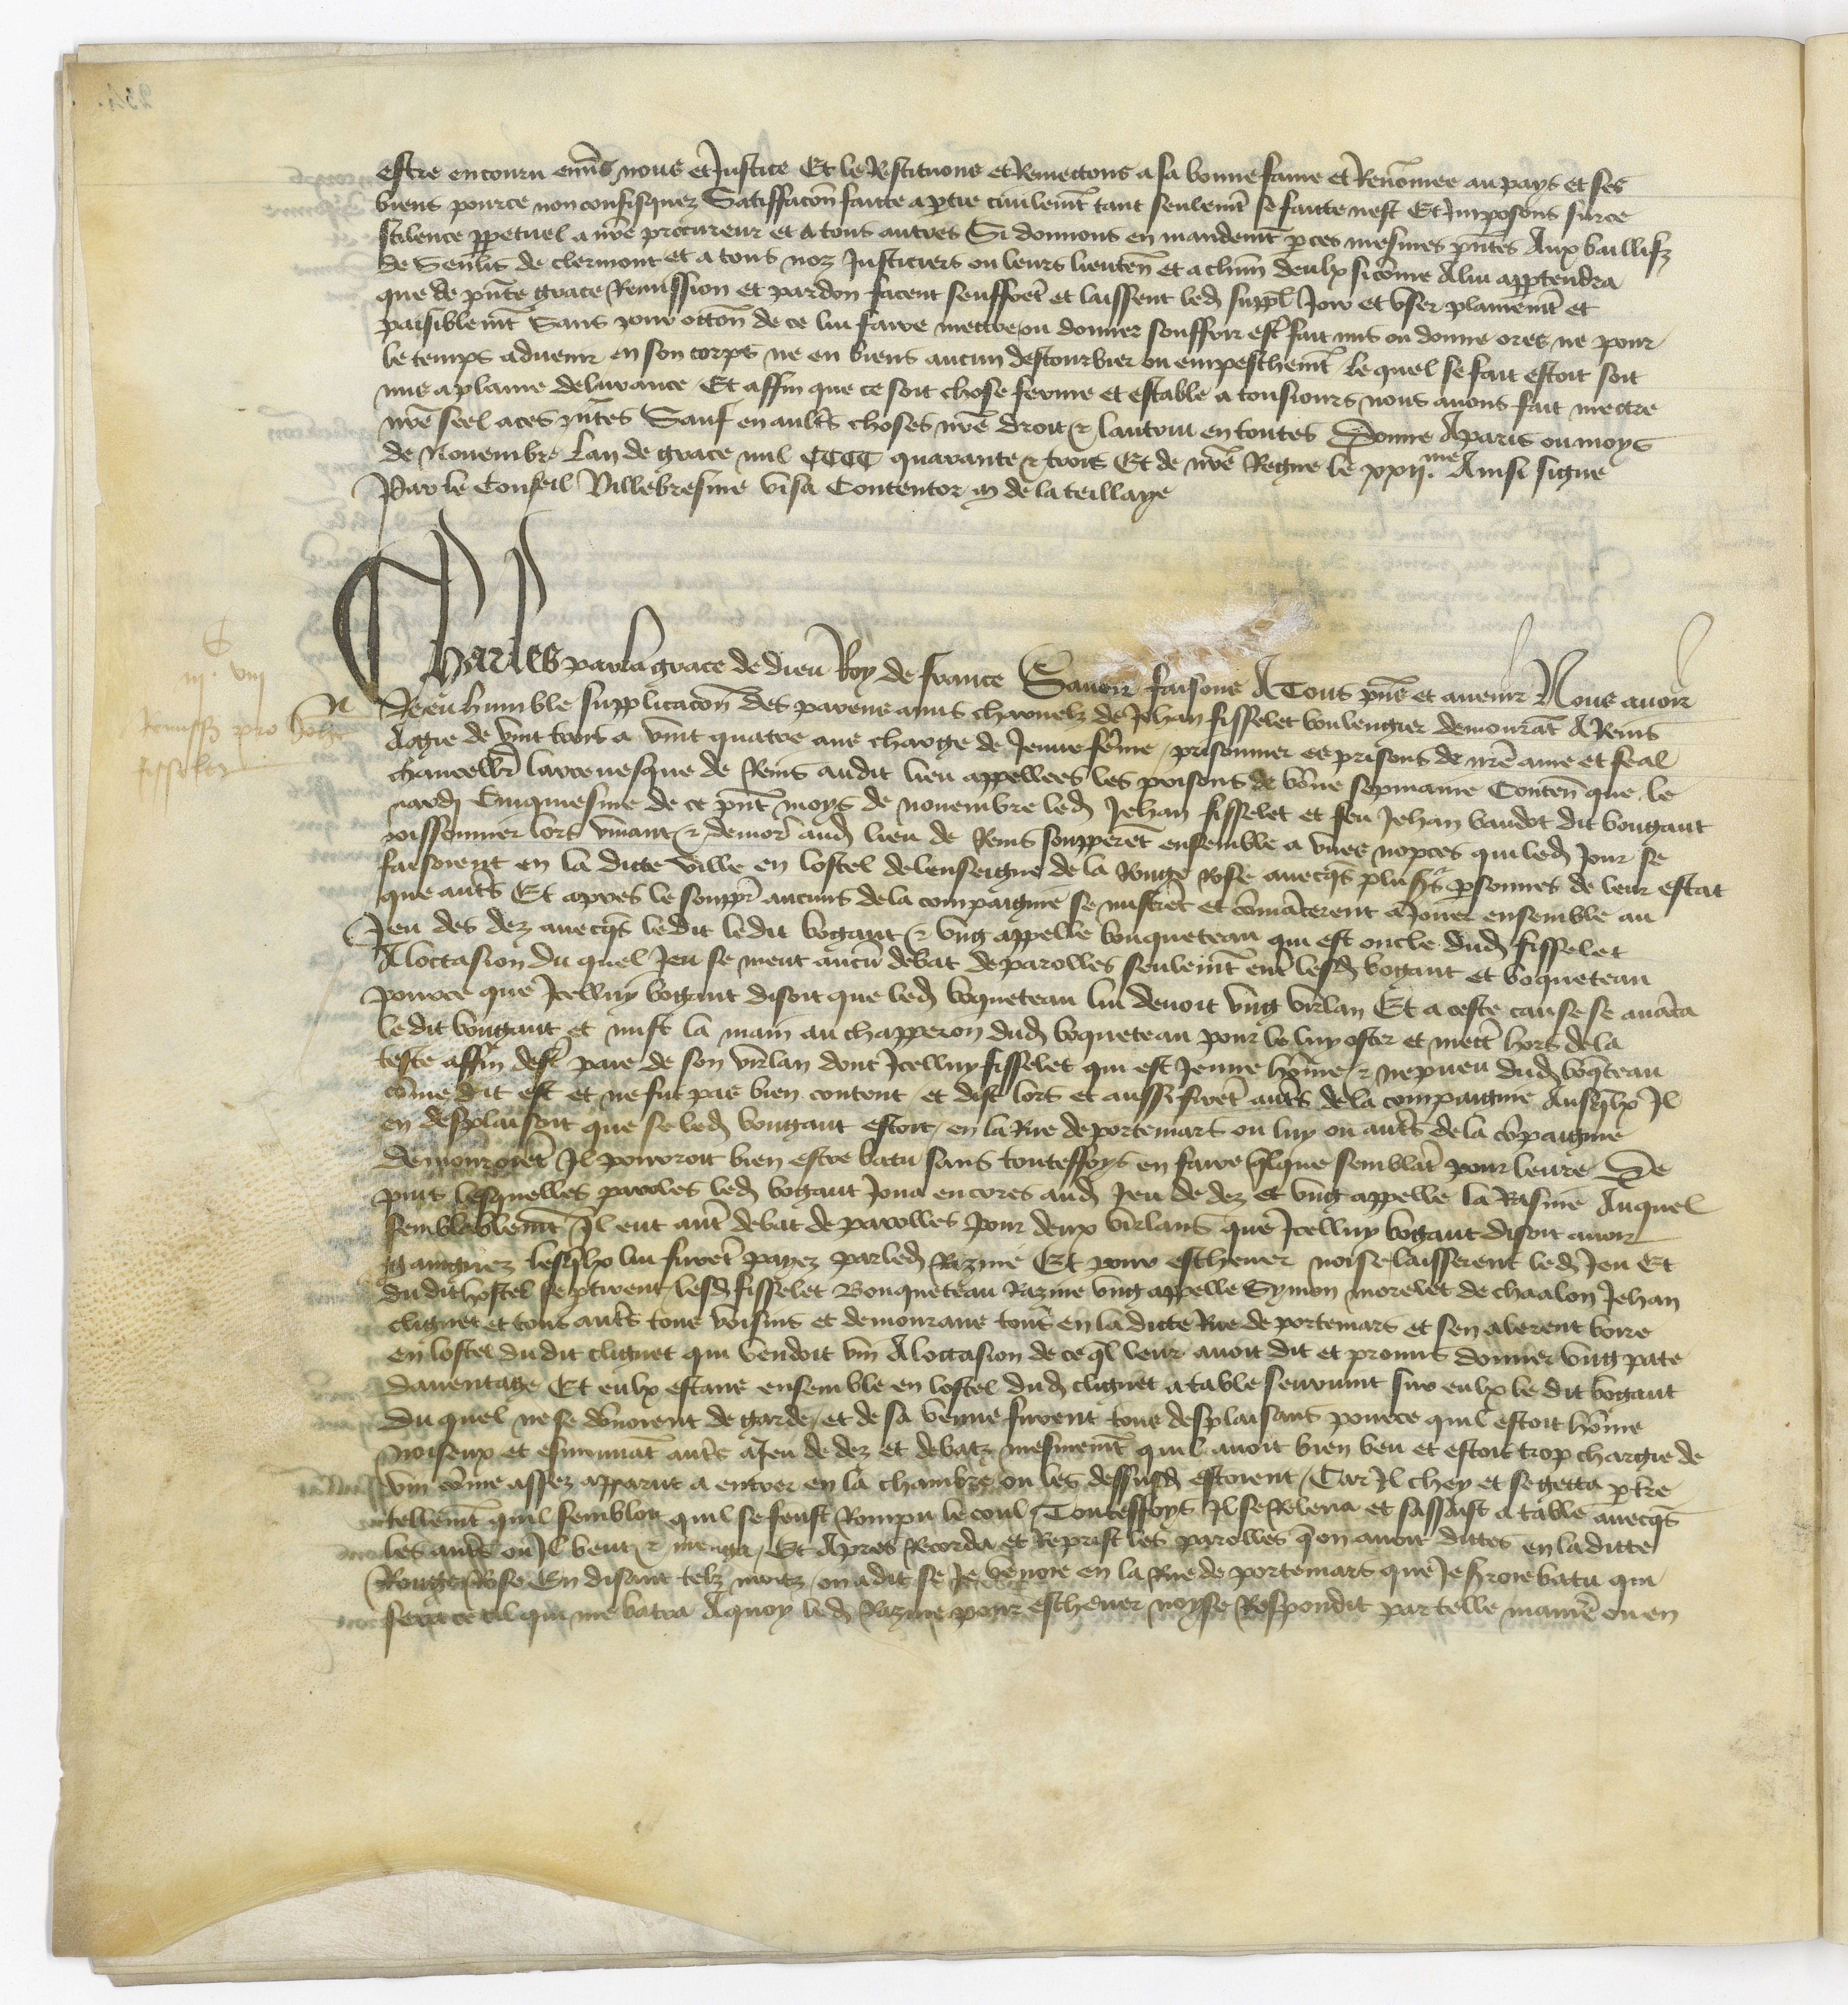 estre encouru env̄s nous et Justice Et le Restituons et Remectons a sa bonne fame et Renōmee au pays et ses
biens pource non confisquez Satisfacōn faicte a ptie ciuilemt̄ tant seulemt̄ se faicte nest Et Imposons sur ce
scilence ppetuel a nr̄e procureur et a tous autres Si donnons en mandemt̄ p ces mesmes pn̄tes Aux baillifz
de Senlis de clermont et a tous noz Justiciers ou leurs lieuten̄ et a chūn deulx sicōme A lui apptendra
que de pn̄te grace Remission et pardon facent seuffret̄ et laissent led suppl̄ Joir et vser plainemt̄ et
paisiblemt̄ Sans pour occōn de ce lui faire mectre ou donner souffrir estr̄ fait mis ou donne ores ne pour
le temps aduenir en son corps ne en biens aucun destourbier ou empeschemt̄ le quel se fait estoit soit
mis a plaine deliurance Et affin que ce soit chose ferme et estable a tousiours nous auons fait mectre
nr̄e seel a ces pn̄tes Sauf en autrs̄ choses nr̄e droit & lautrui en toutes Donne A paris ou moys
de Nouembre Lan de grace mil CCCC quarante & trois Et de nr̄e Regne le xxii.me Ainsi signe
Par le Conseil Villebresme visa Contentor m de la teillaye
C
iij. viij
Remissio pro Johe
fisselet
Charles par la grace de dieu Roy de france Sauoir faisons A Tous pn̄s et auenir Nous auoir
Receu humble supplicacōn des parens amis charnelz de Jehan fisselet boulengier demourāt A Reins
Aagie de vint trois a vint quatre ans charge de Jenne fēme / prisonnier es prisons de nr̄e ame et feal
chancellr̄ larceuesque de Reins audit lieu appellees les prisons de bōne sepmaine Conten̄ que le
mardj Cinquiesme de ce pn̄t moys de nouembre led Jehan fisselet et feu Jehan baudot dit bougaut
poissonnier lors viuant & demor̄ aud lieu de Reins soupperēt ensemble a vnes nopces qui led Jour se
faisoient en la dicte ville en lostel de lenseigne de la Rouge Rose auecqs̄ plusrs̄ psonnes de leur estat
que autrs̄ Et apres le souppr̄ aucuns de la compaignie se mistrēt et cōmācerent a Jouer ensemble au
Jeu des dez auecqs̄ ledit ledit bogaut & vng appelle bouqueteau qui est oncle dud fisselet
A loccasion du quel Jeu se meut aucū debat de parolles seulemt̄ entr̄ lesd bogaut et boqueteau
pource que Jcelluy bogaut disoit que led boqueteau lui deuoit vng virlan Et a ceste cause se auāca
ledit bougaut et mist la main au chapperon dud boqueteau pour le luy oster et mectr̄ hors de la
teste affin destr̄ paie de son virlan dont Jcelluy fisselet qui est Jenne hōme & nepueu dud boqteau
cōme dit est et ne fut pas bien content et dist lors et aussi firēt autrs̄ de la compaignie Ausqlx Il
en desplaisoit que se led bougaut estoit en la Rue de portemars ou luy ou autrs̄ de la cōpaignie
demouroiēt Il pourroit bien estre batu sans touteffoys en faire qlque semblāt pour leure De
puis lesquelles paroles led bogaut Joua encores aud Jeu de dez et vng appelle la Rasine Auquel
semblablemt̄ Il eut autr̄ debat de parolles pour deux virlans que Jcelluy bogaut disoit auoir
gaingnez lesqlx lui furēt payez par led Razine Et pour escheuer noise laisserent led Jeu Et
dudit hostel se ptirent lesd fisselet Bouqueteau Razine vng appelle Symon morelet de chaalon Jehan
cliguet et tous autrs̄ tous voisins et demourans tous en la dicte Rue de portemars et sen alerent boire
en lostel du dit cliguet qui vendoit vin A loccasion de ce ql leur auoit dit et promis donner vng pate
dauentage Et eulx estans ensemble en lostel dud cliguet a table seuruint sur eulx le dit bogaut
Du quel ne se dōnoient de garde / et de sa venue furent tous desplaisans pource quil estoit hōme
noiseux et esmouuāt autrs̄ a Jeu de dez et debatz mesmemt̄ quil auoit bien beu et estoit trop chargie de
vin cōme assez apparut a entrer en la chambre ou les dessusd estoient / Car Il chey et se getta p trē
tellemt̄ quil sembloit quil se feust Rompu le coul / Touteffoys Il se Releua et sassist a table auecqs̄
les autrs̄ ou Il beut & menga / Et Apres Recorda et Reprist les parolles qon auoit dictes en la dicte
Rouge Rose En disant telz motz on a dit se Je venoie en la Rue de portemars que Je seroie batu qui
sera ce cil qui me batra A quoy led Razine pour escheuer noyse Respondit par telle manier̄ ou en